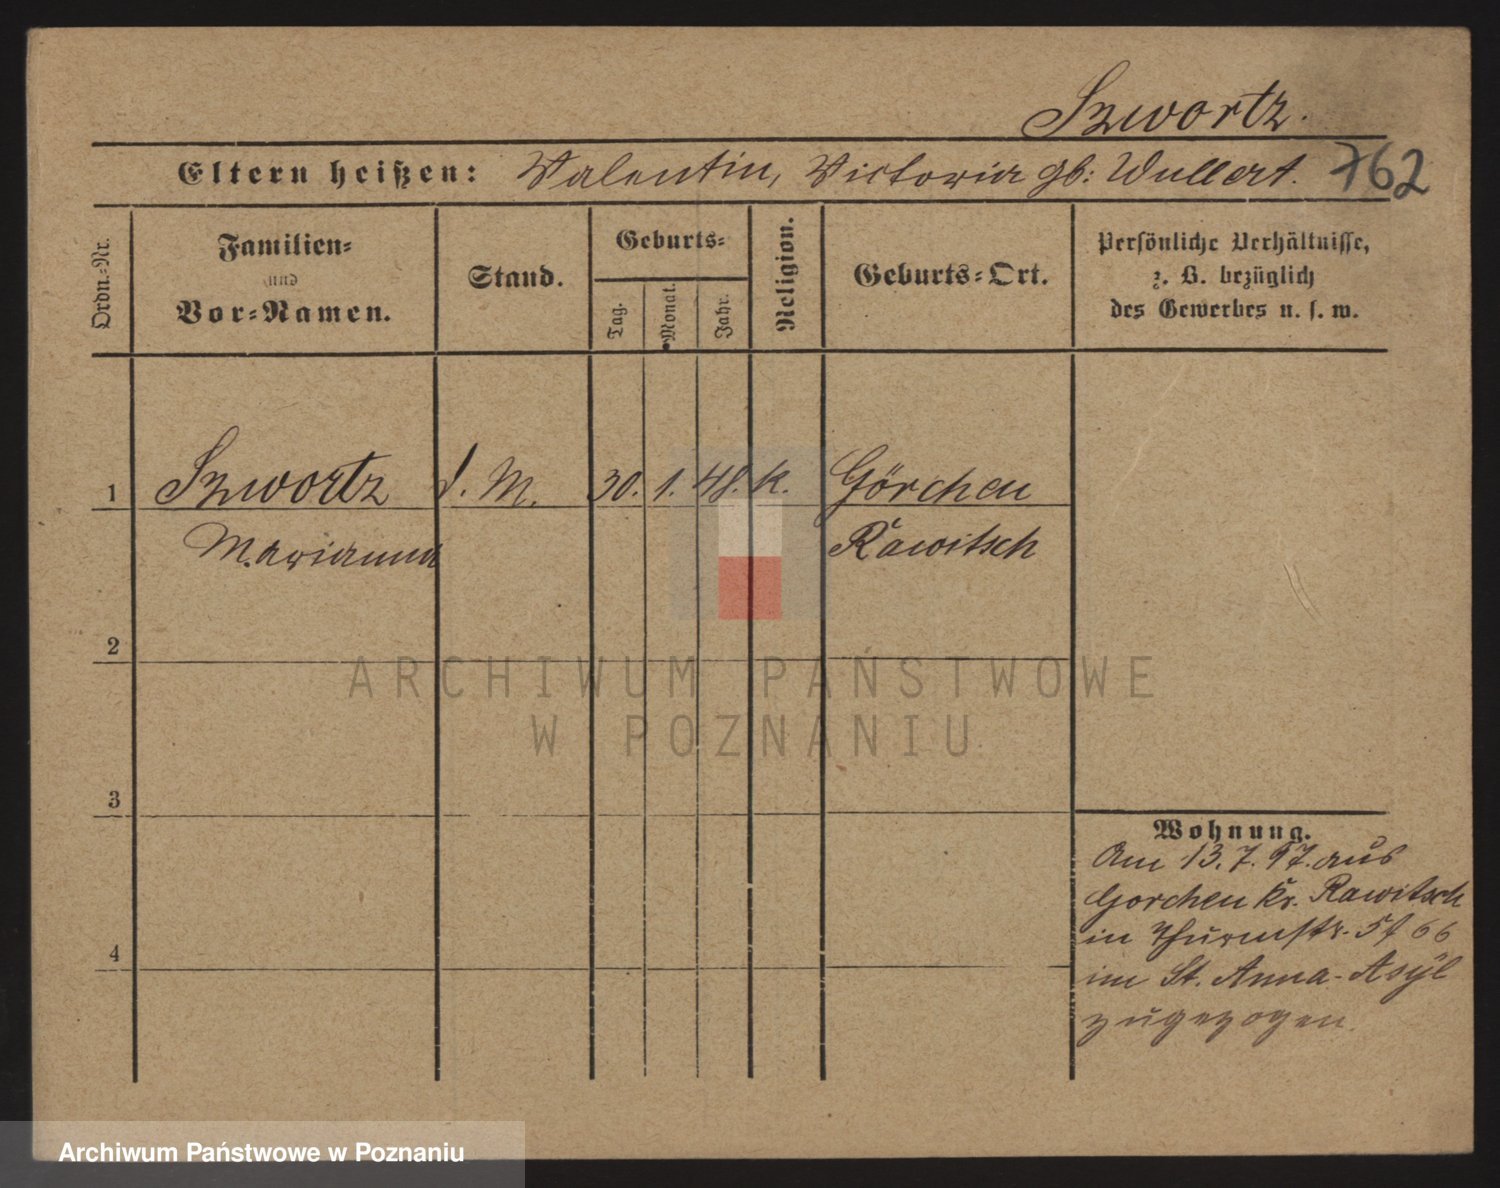 Szwortz.
Eltern heißen: Valentin, Victoria gb: Wullert. 762
Ordn.-Nr.
Familien-
und
Vor-Namen.
Stand.
Geburts-
Tag.
Monat.
Jahr.
Religion.
Geburts-Ort.
Persönliche Verhältnisse,
z. B. bezüglich
des Gewerbes u. s. w.
1 Szwortz d. M. 30. 1. 48. k. Görchen
Marianna Rawitsch
2
ARCHIWUM PAŃSTWOWE
W POZNANIU
3
Wohnung.
Am 13. 7. 97. aus
Gorchen Kr. Rawitsch
in Thurmstr. 5/ 66
4
im St. Anna-Asyl
zugezogen.
Archiwum Państwowe w Poznaniu